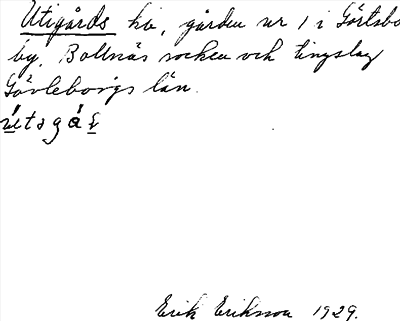 Utigårds hö, gården nr 1 i Görtsbo
by. Bollnäs socken och tingslag
Gävleborgs län.
Erik Eriksson 1929.